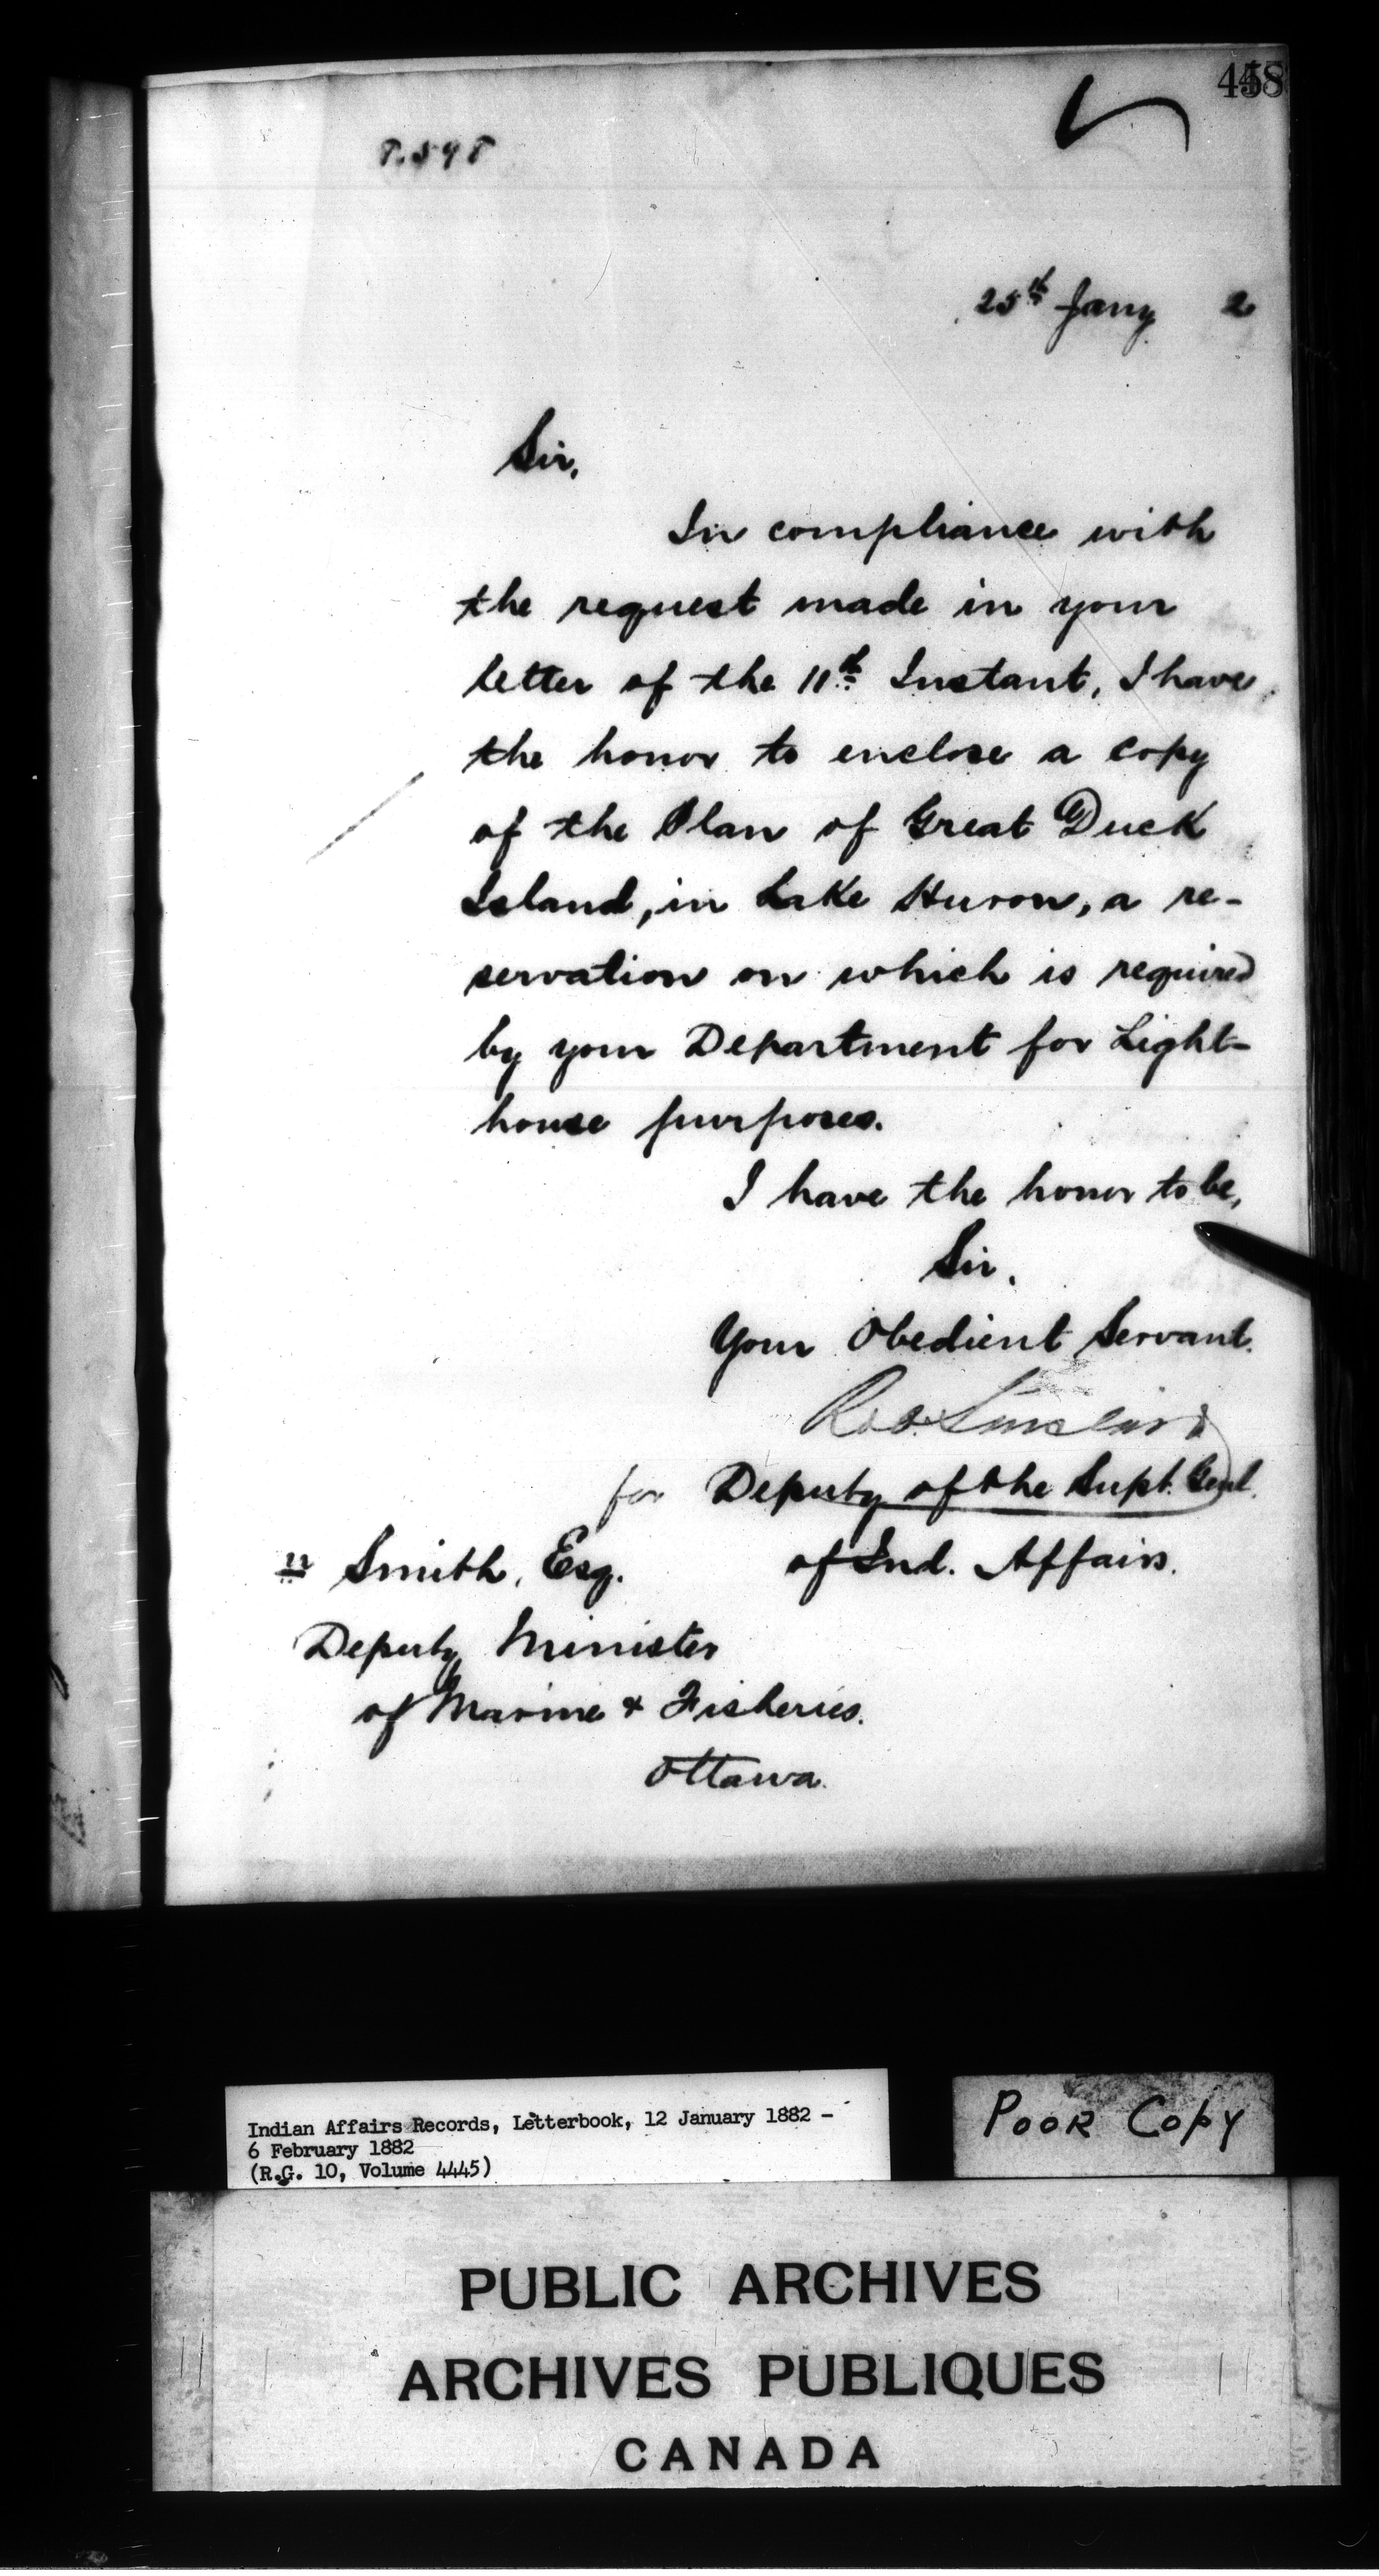 458
25th Jany 2
Sir,
In compliance with
the request made in your
letter of the 11th Instant, I have
the honor to enclose a copy
of the Plan of Great Duck
Island, in Lake Huron, a re-
servation on which is required
by your Department for Light-
house purposes.
I have the honor to be,
Sir,
Your Obedient Servant.
Rob. Sinclair
for Deputy of the Supt. Genl.
of Ind. Affairs.
Smith, Esq.
Deputy Minister
of Marine & Fisheries.
Ottawa.
Indian Affairs Records, Letterbook, 12 January 1882 -
6 February 1882
(R.G. 10, Volume 4445)
POOR COPY
PUBLIC ARCHIVES
ARCHIVES PUBLIQUES
CANADA